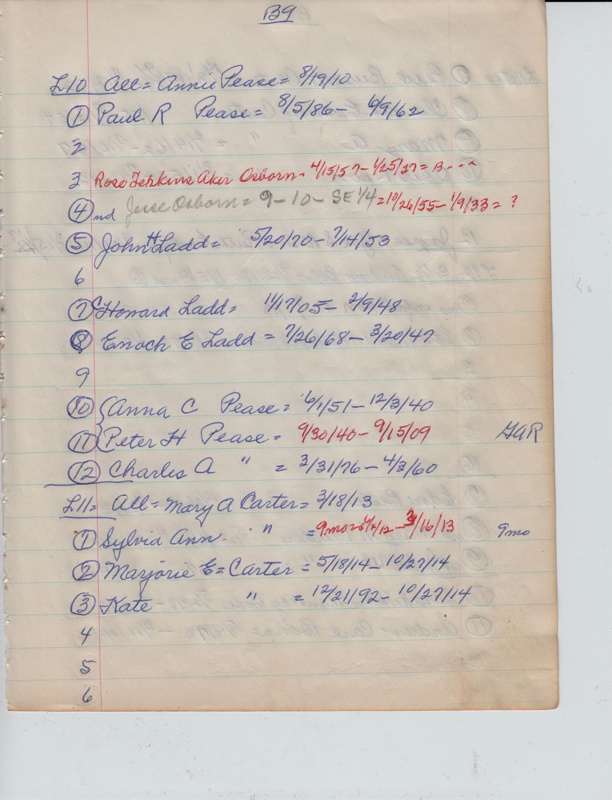 B9
L10 All = Annie Pease = 8/19/10
① Paul R Pease = 8/5/86 - 6/9/62
2
3 Rose Jepkins Aker Osborn - 4/15/57 - 1/25/27 = B - - -
④ nd Jesse Osborn = 9-10-SE 1/4 = 10/26/55 - 1/9/33 = ?
⑤ John H Ladd = 5/20/70 - 7/14/53
6
⑦ Howard Ladd = 11/17/05 - 2/9/48
⑧ Enoch E Ladd = 7/26/68 - 3/20/47
9
⑩ { Anna C Pease = 6/1/51 - 12/3/40
⑪ { Peter H Pease = 9/30/40 - 9/15/09 GAR
⑫ Charles A " = 3/31/76 - 4/3/60
L11 = All = Mary A Carter = 3/18/13
① Sylvia Ann " = 9mo = 6/4/12 - 3/16/13 9mo
② Marjorie E = Carter = 5/18/14 - 10/27/14
③ Kate " = 12/21/92 - 10/27/14
4
5
6